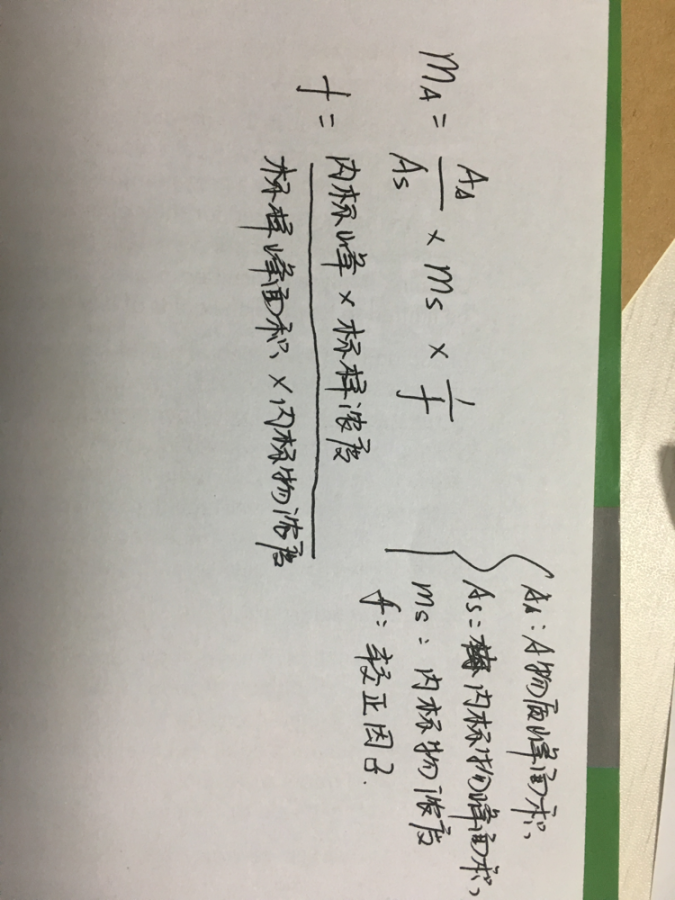 mA = AA/As × ms × 1/f
f = 内标峰 × 标样浓度 / 标样峰面积 × 内标物浓度
AA：A物质峰面积
As：内标物峰面积
ms：内标物浓度
f：较正因子.